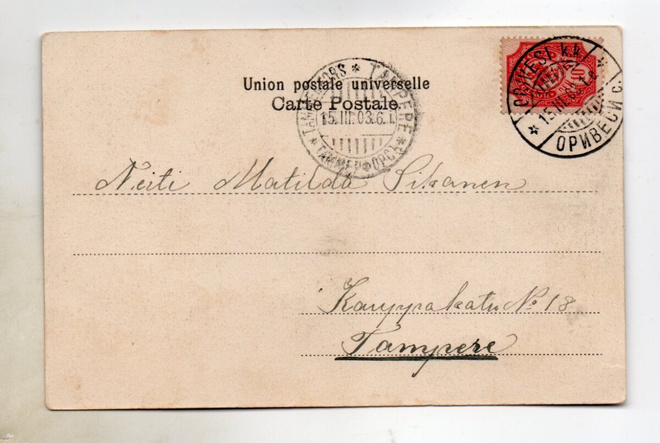 Union postale universelle
Carte Postale
TAMMERFORS * TAMPERE * ТАММЕРФОРСЪ *
15.III.03.6.
ORIVESI k.k. * ОРИВЕСИ с. *
15.III.03.
10
Neiti Matilda
Kauppakatu No 18
Tampere